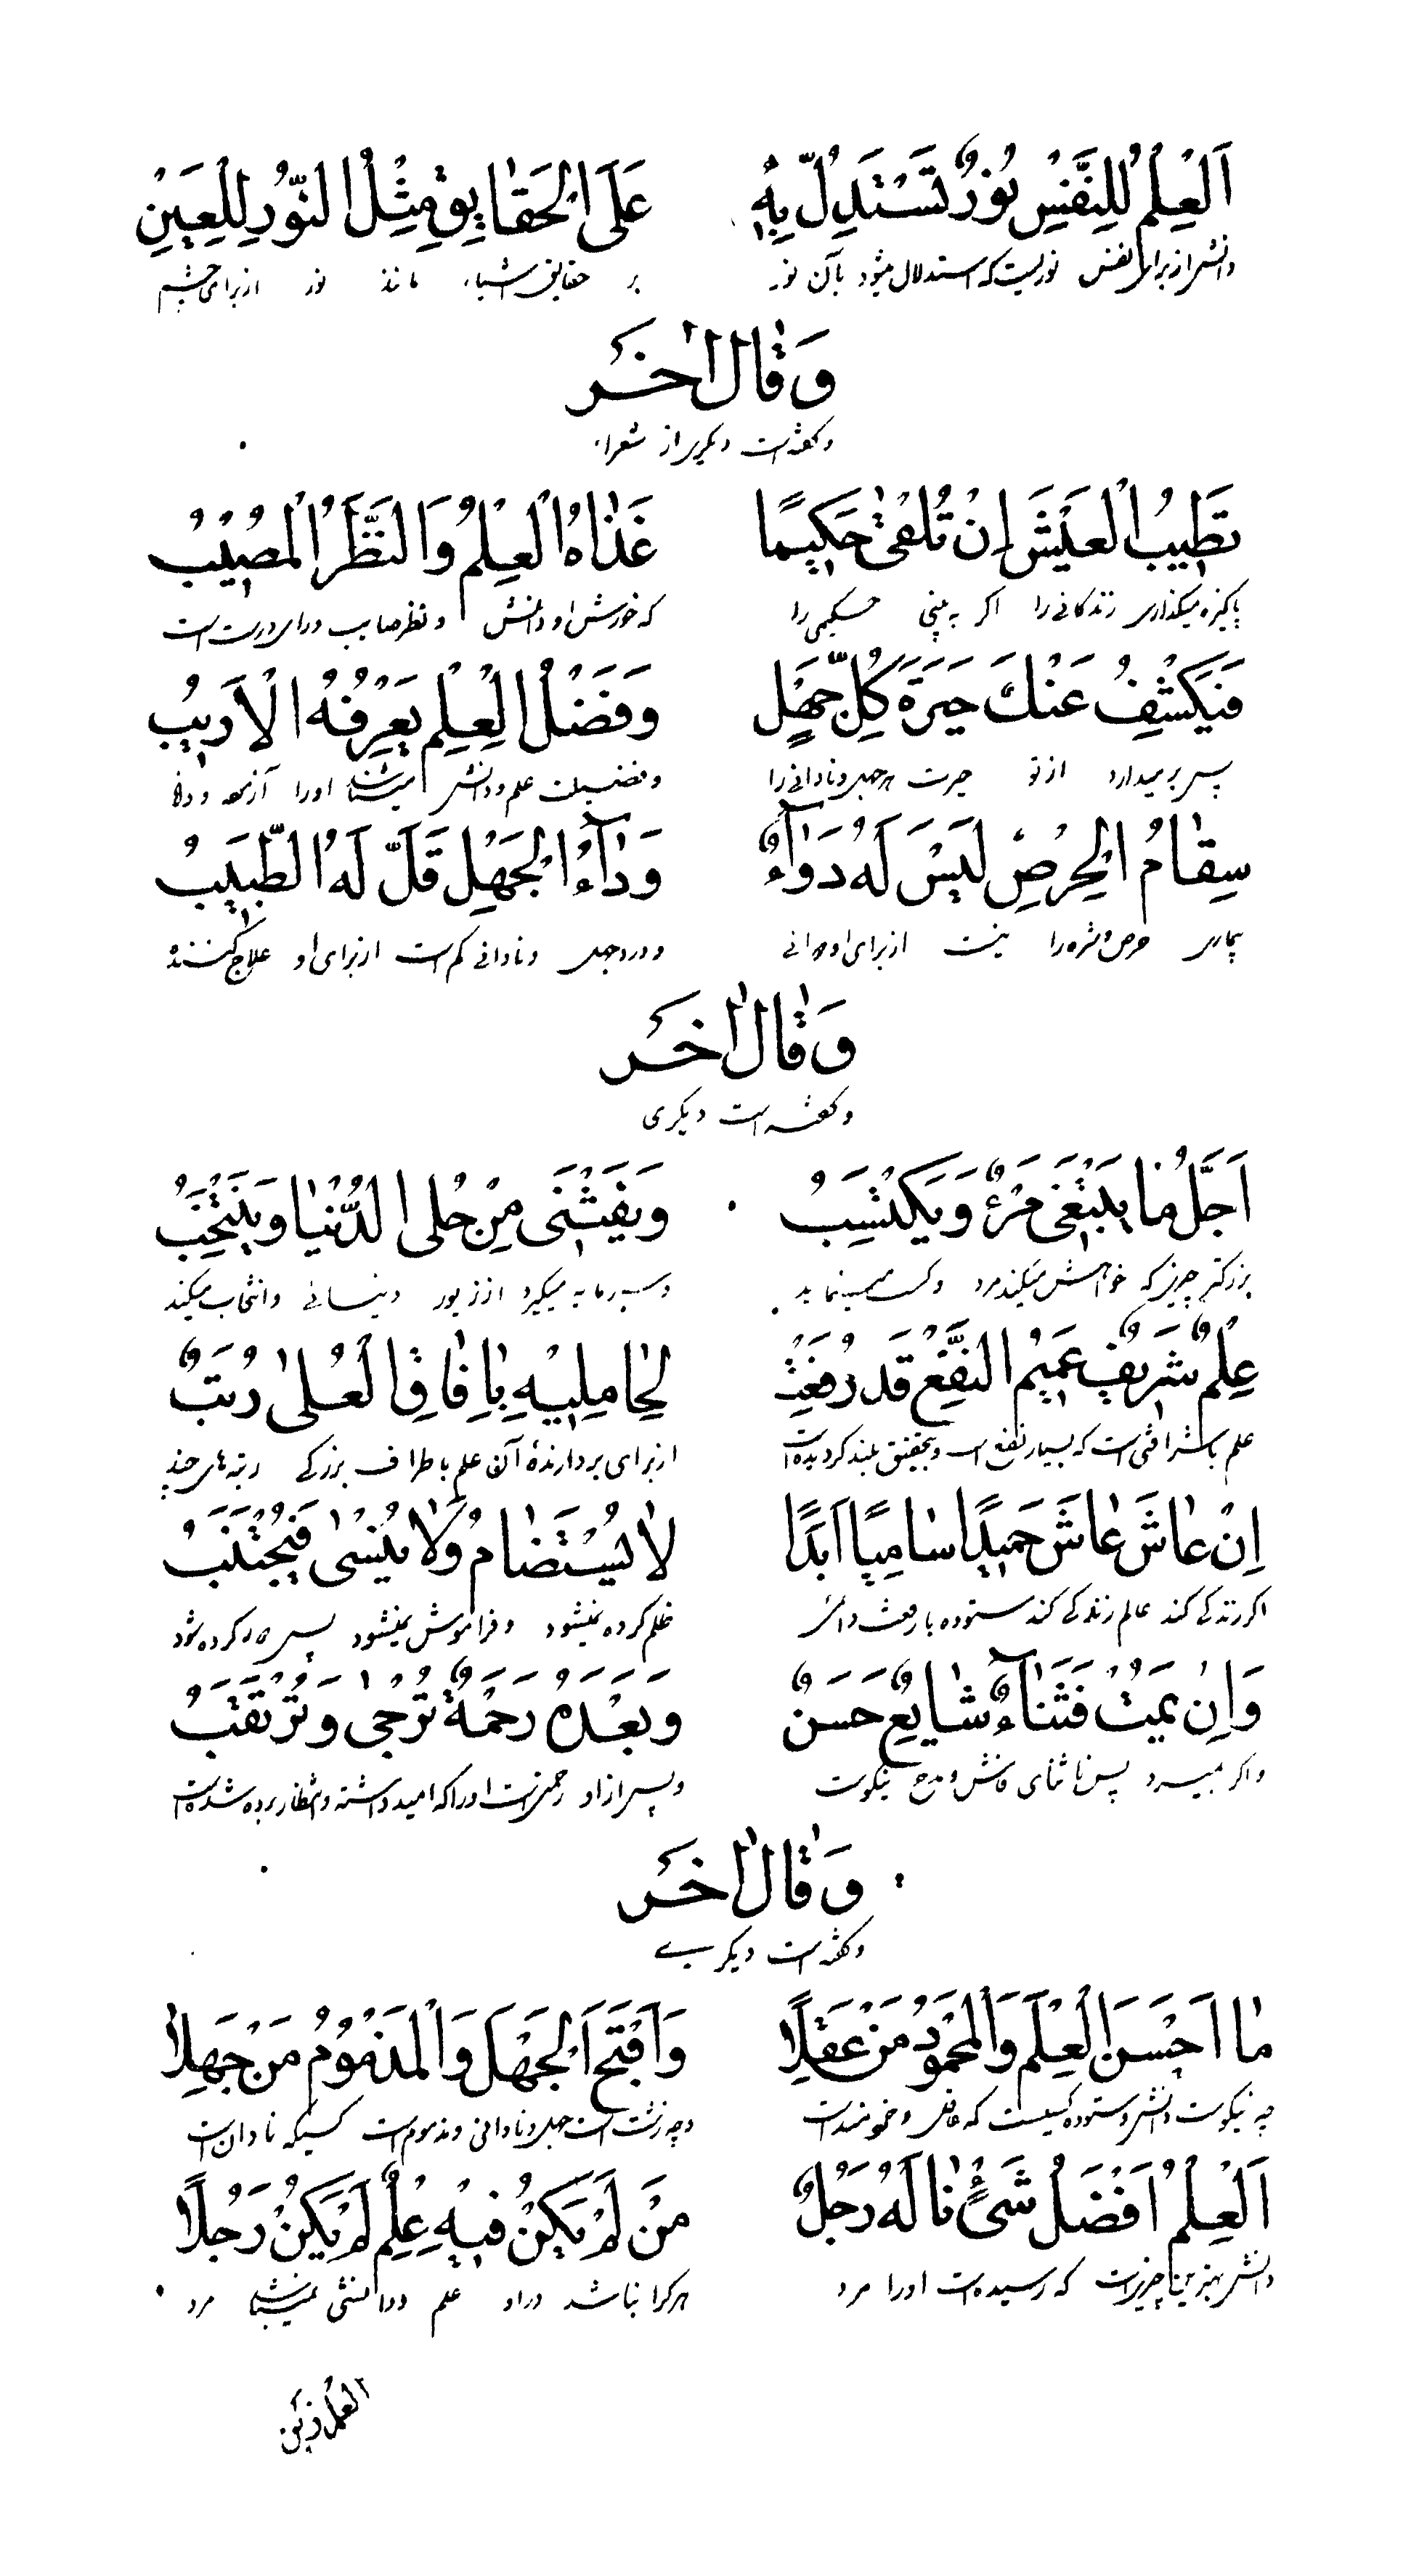 اَلْعِلْمُ لِلنَّفْسِ نُورٌ تَسْتَدِلُّ بِهِ عَلَى الْحَقٰايِقِ مِثْلُ النُّورِ لِلْعَيْنِ
دانش از برای نفس نوریست که استدلال میشود بآن نور بر حقایق اشیاء مانند نور از برای چشم
وَ قٰالَ اٰخَر
و گفته است دیگری از شعراء
تَطٖيبُ الْعَيْشَ اِنْ تَلْقٰى حَكٖيمًا غَذٰاهُ الْعِلْمُ وَالنَّظَرُ الْمُصٖيْبُ
پاکیزه میگذاری زندگانی را اگر به بینی حکیمی را که خورش او دانش و نظر صایب و رای درست است
فَيَكْشِفُ عَنْكَ حَيْرَةَ كُلِّ جَهْلٍ وَ فَضْلُ الْعِلْمِ يَعْرِفُهُ الْاَرٖيبُ
پس بر میدارد از تو حیرت هر جهل و نادانی را و فضیلت علم و دانش میشناسد او را آزموده و دانا
سِقٰامُ الْحِرْصِ لَيْسَ لَهُ دَوٰآءٌ وَ دٰآءُ الْجَهْلِ قَلَّ لَهُ الطَّبٖيبُ
بیماری حرص و شره را نیست از برای او دوائی و درد جهل و نادانی کم است از برای او علاج کننده
وَ قٰالَ اٰخَر
و گفته است دیگری
اَجَلُّ مٰا يَبْتَغٖى مَرْءٌ وَ يَكْتَسِبُ وَ يَقْتَنٖى مِنْ حُلِى الدُّنْيٰا وَ يَنْتَخِبُ
بزرگتر چیزی که خواهش میکند مرد و کسب مینماید و سرمایه میگیرد از زیور دنیائی و انتخاب میکند
عِلْمٌ شَرٖيفٌ عَمٖيمُ النَّفْعِ قَدْ رُفِعَتْ لِحٰامِلٖيْهِ بِاٰفٰاقِ الْعُلٰى رُتَبٌ
علم با شرافتی است که بسیار نفع است و بتحقیق بلند گردیده است از برای بردارندهٔ آن علم باطراف بزرگی رتبه های چند
اِنْ عٰاشَ عٰاشَ حَمٖيدًا سٰامِيًا اَبَدًا لٰا يُسْتَضٰامُ وَ لٰا يُنْسٰى فَيُجْتَنَبُ
اگر زندگی کند عالم زندگی کند ستوده با رفعت دائمی ظلم کرده نمیشود و فراموش نمیشود پس کرده شود
وَ اِنْ يَمُتْ فَثَنٰآءٌ شٰايِعٌ حَسَنٌ وَ بَعْدَهُ رَحْمَةٌ تُرْجٰى وَ تُرْتَقَبُ
و اگر میرد پس ثنای فاش و مدح نیکوست و پس از او رحمتیست او را که امید داشته و انتظار برده شده است
وَ قٰالَ اٰخَر
و گفته است دیگری
مٰا اَحْسَنَ الْعِلْمَ وَالْمَحْمُودُ مَنْ عَقَلٰا وَ اَقْبَحَ الْجَهْلَ وَالْمَذْمُومُ مَنْ جَهِلٰا
چه نیکوست دانش و ستوده کسیست که عاقل و خردمند است و چه زشت است جهل و نادانی و مذموم است کسیکه نادان است
اَلْعِلْمُ اَفْضَلُ شَيْءٍ نٰالَهُ رَجُلٌ مَنْ لَمْ يَكُنْ فٖيْهِ عِلْمٌ لَمْ يَكُنْ رَجُلًا
دانش بهترین چیزیست که رسیده است او را مرد هر که را نباشد در او علم و دانشی نمیباشد مرد
العلم زين